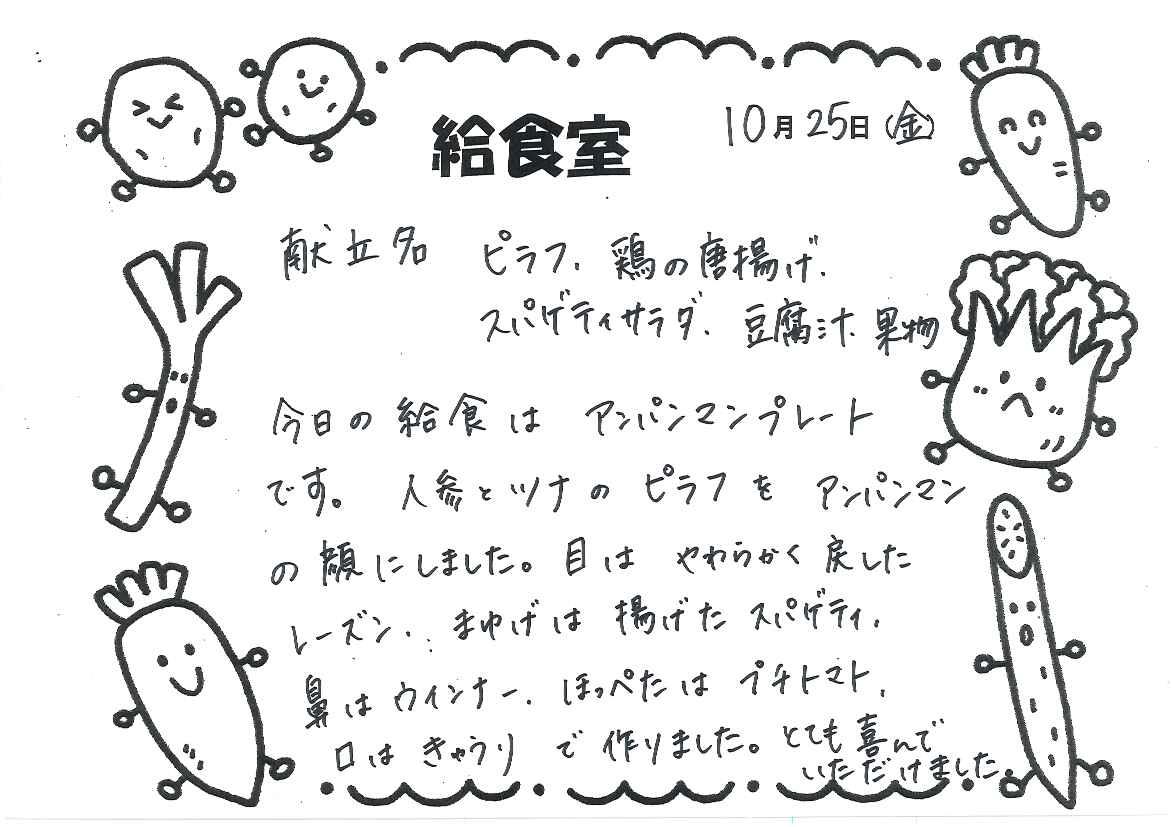 給食室
10月25日(金)
献立名 ピラフ、鶏の唐揚げ、
スパゲティサラダ、豆腐汁、果物
今日の給食は アンパンマンプレート
です。 人参とツナのピラフを アンパンマン
の顔にしました。目は やわらかく戻した
レーズン、まゆげは 揚げたスパゲティ、
鼻はウインナー、ほっぺたは プチトマト、
口は きゅうり で作りました。とても喜んで
いただけました。